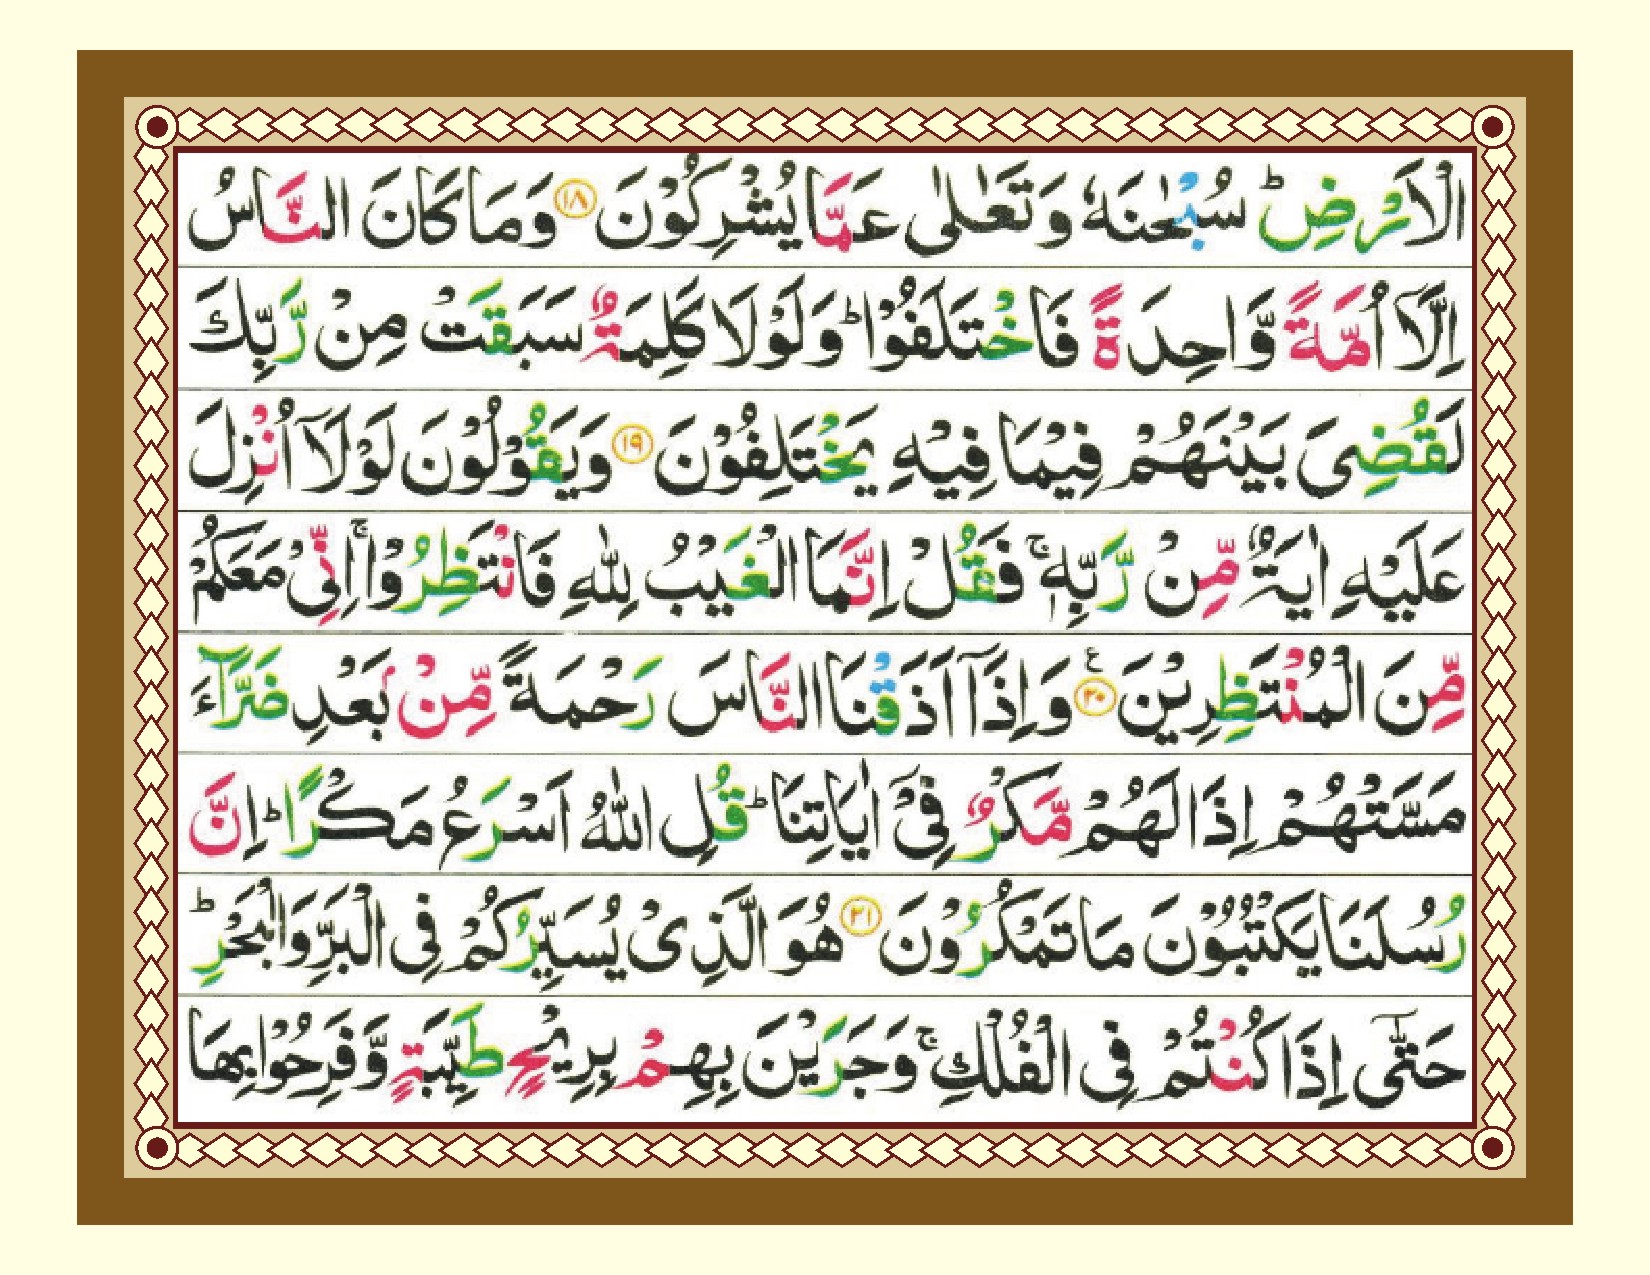 الْاَرْضِ ؕ سُبْحٰنَهٗ وَتَعٰلٰى عَمَّا يُشْرِكُوْنَ ﴿۱۸﴾ وَمَا كَانَ النَّاسُ
اِلَّاۤ اُمَّةً وَّاحِدَةً فَاخْتَلَفُوْا ؕ وَلَوْلَا كَلِمَةٌ سَبَقَتْ مِنْ رَّبِّكَ
لَقُضِىَ بَيْنَهُمْ فِيْمَا فِيْهِ يَخْتَلِفُوْنَ ﴿۱۹﴾ وَيَقُوْلُوْنَ لَوْلَاۤ اُنْزِلَ
عَلَيْهِ اٰيَةٌ مِّنْ رَّبِّهٖ ۚ فَقُلْ اِنَّمَا الْغَيْبُ لِلّٰهِ فَانْتَظِرُوْا ۚ اِنِّىْ مَعَكُمْ
مِّنَ الْمُنْتَظِرِيْنَ ﴿۲۰﴾ ع وَاِذَاۤ اَذَقْنَا النَّاسَ رَحْمَةً مِّنْۢ بَعْدِ ضَرَّآءَ
مَسَّتْهُمْ اِذَا لَهُمْ مَّكْرٌ فِىْۤ اٰيَاتِنَا ؕ قُلِ اللّٰهُ اَسْرَعُ مَكْرًا ؕ اِنَّ
رُسُلَنَا يَكْتُبُوْنَ مَا تَمْكُرُوْنَ ﴿۲۱﴾ هُوَ الَّذِىْ يُسَيِّرُكُمْ فِى الْبَرِّ وَالْبَحْرِ ؕ
حَتّٰۤى اِذَا كُنْتُمْ فِى الْفُلْكِ ۚ وَجَرَيْنَ بِهِمْ بِرِيْحٍ طَيِّبَةٍ وَّفَرِحُوْا بِهَا